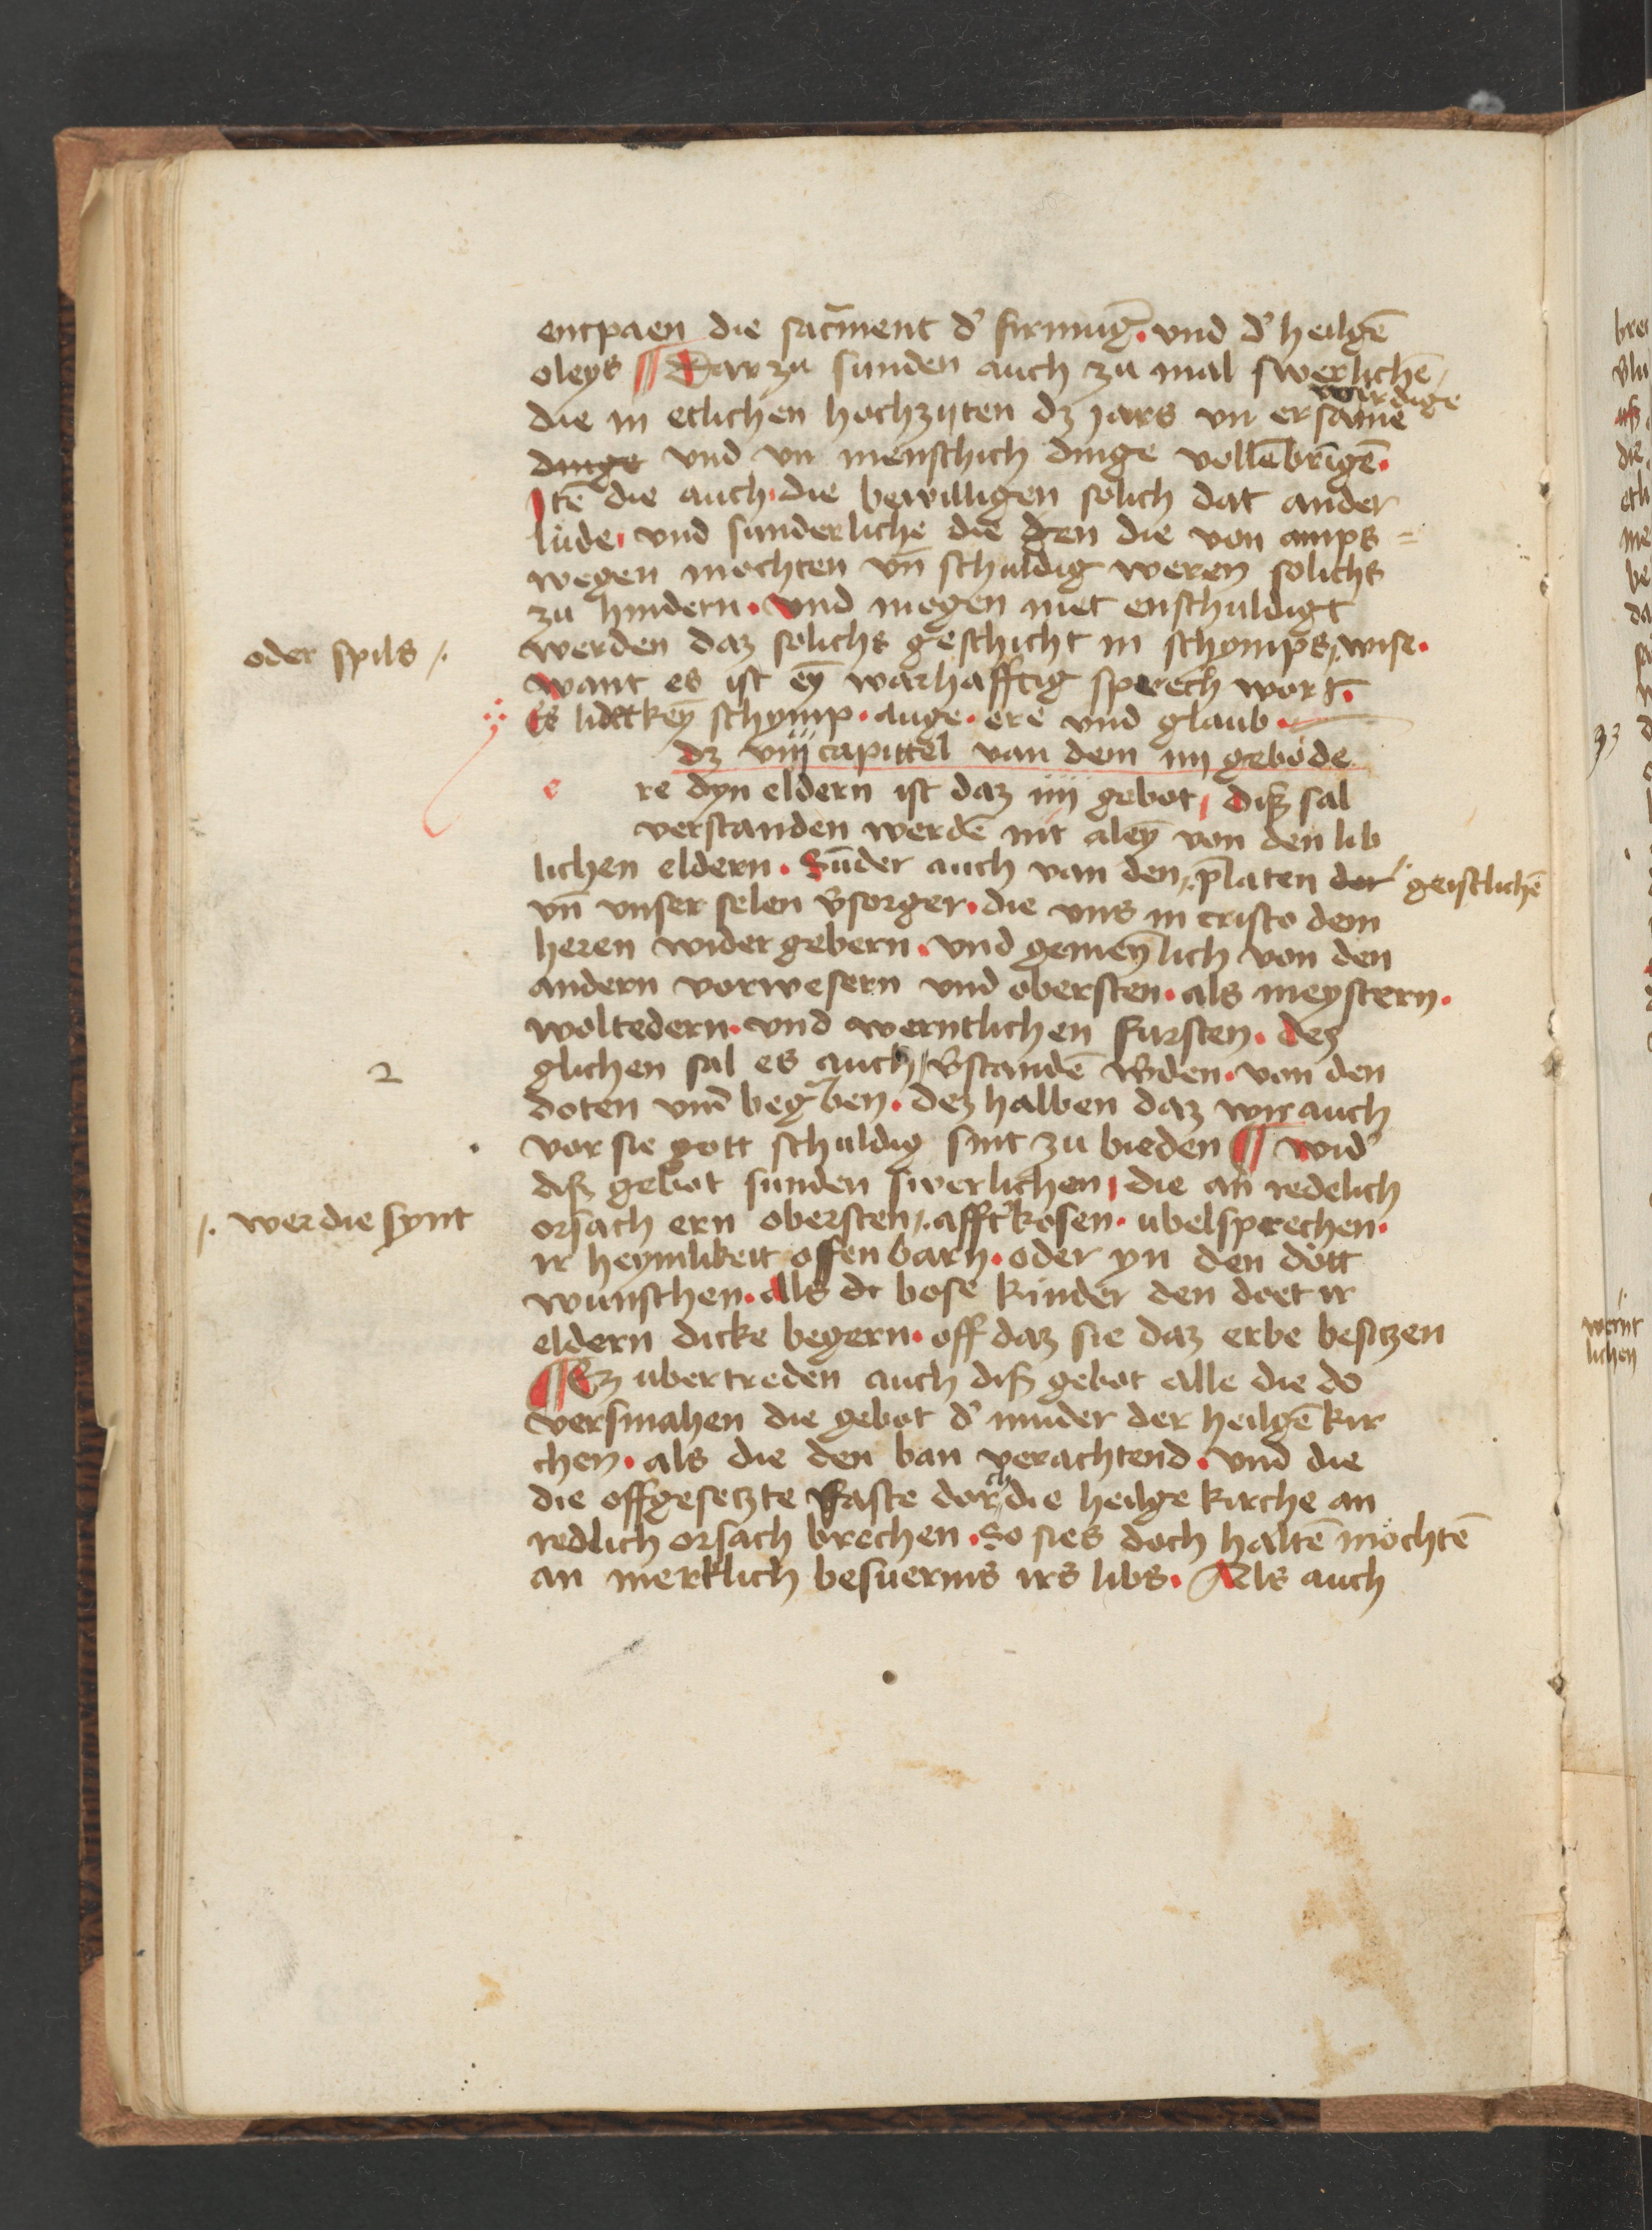 entpaen die sacͬment dˀ firmūg. vnd dˀ heilgē
oleys ¶ Dar zu sunden auch zu mal swerlichē /
wirdige
die in etlichen hochzijten dz jars vn ersame
dinge vnd vn menschich dinge vollēbrīgē.
Itē die auch die bewilligen solich dat ander
lude. vnd sunderliche die den die von amps =
wegen mochten vn̄ schuldig weren solichs
zu hindern. vnd mogen niet enschuldigt
werden daz solichs geschicht in schymps /. wise.
oder spils /.
want es ist eȳ warhafftig sprech wort.
Es lidet keȳ schymp. auge. ere vnd glaub.
dz viiij capittel van dem iiij gebode
e re dyn eldern ist daz iiij gebot, diß sal
verstanden werdē nit aleȳ von den lib
lichen eldern. Sūder auch van den /. p̄laten der /. geistlichē
vn̄ vnser selen v̄sorger. die vns in cristo dem
heren wider gebern. vnd gemeȳlich von den
andern vorwesern vnd obersten. als meystern.
woltedern. vnd werntlichen fursten. dez
2
glichen sal es auch /. v̄standē w̄den. von den
doten vnd begraben. dez halben daz wir auch
vor sie gott schuldig sint zu bieden ¶ widˀ
diß gebot sunden swerlichen, die an redelich
/. wer die synt
orsach ern obersten /. afftˀkosen. ubelsprechen.
ir heymlikeit offenbarn. oder yn den dott
wunschen. Als die bose kinder den doet ir
eldern dicke begern. off daz sie daz erbe besitzen
¶ Ez ubertreden auch diß gebot alle die do
versmahen die gebot dˀ muder der heilgē kir
chen. als die den ban verachtend. vnd die
die offgesetzte faste dorch die heilge kirche an
redlich orsach brechen. So sies doch haltē möchtē
an merklich besuernis irs libs. Als auch
93
wernt
lichen